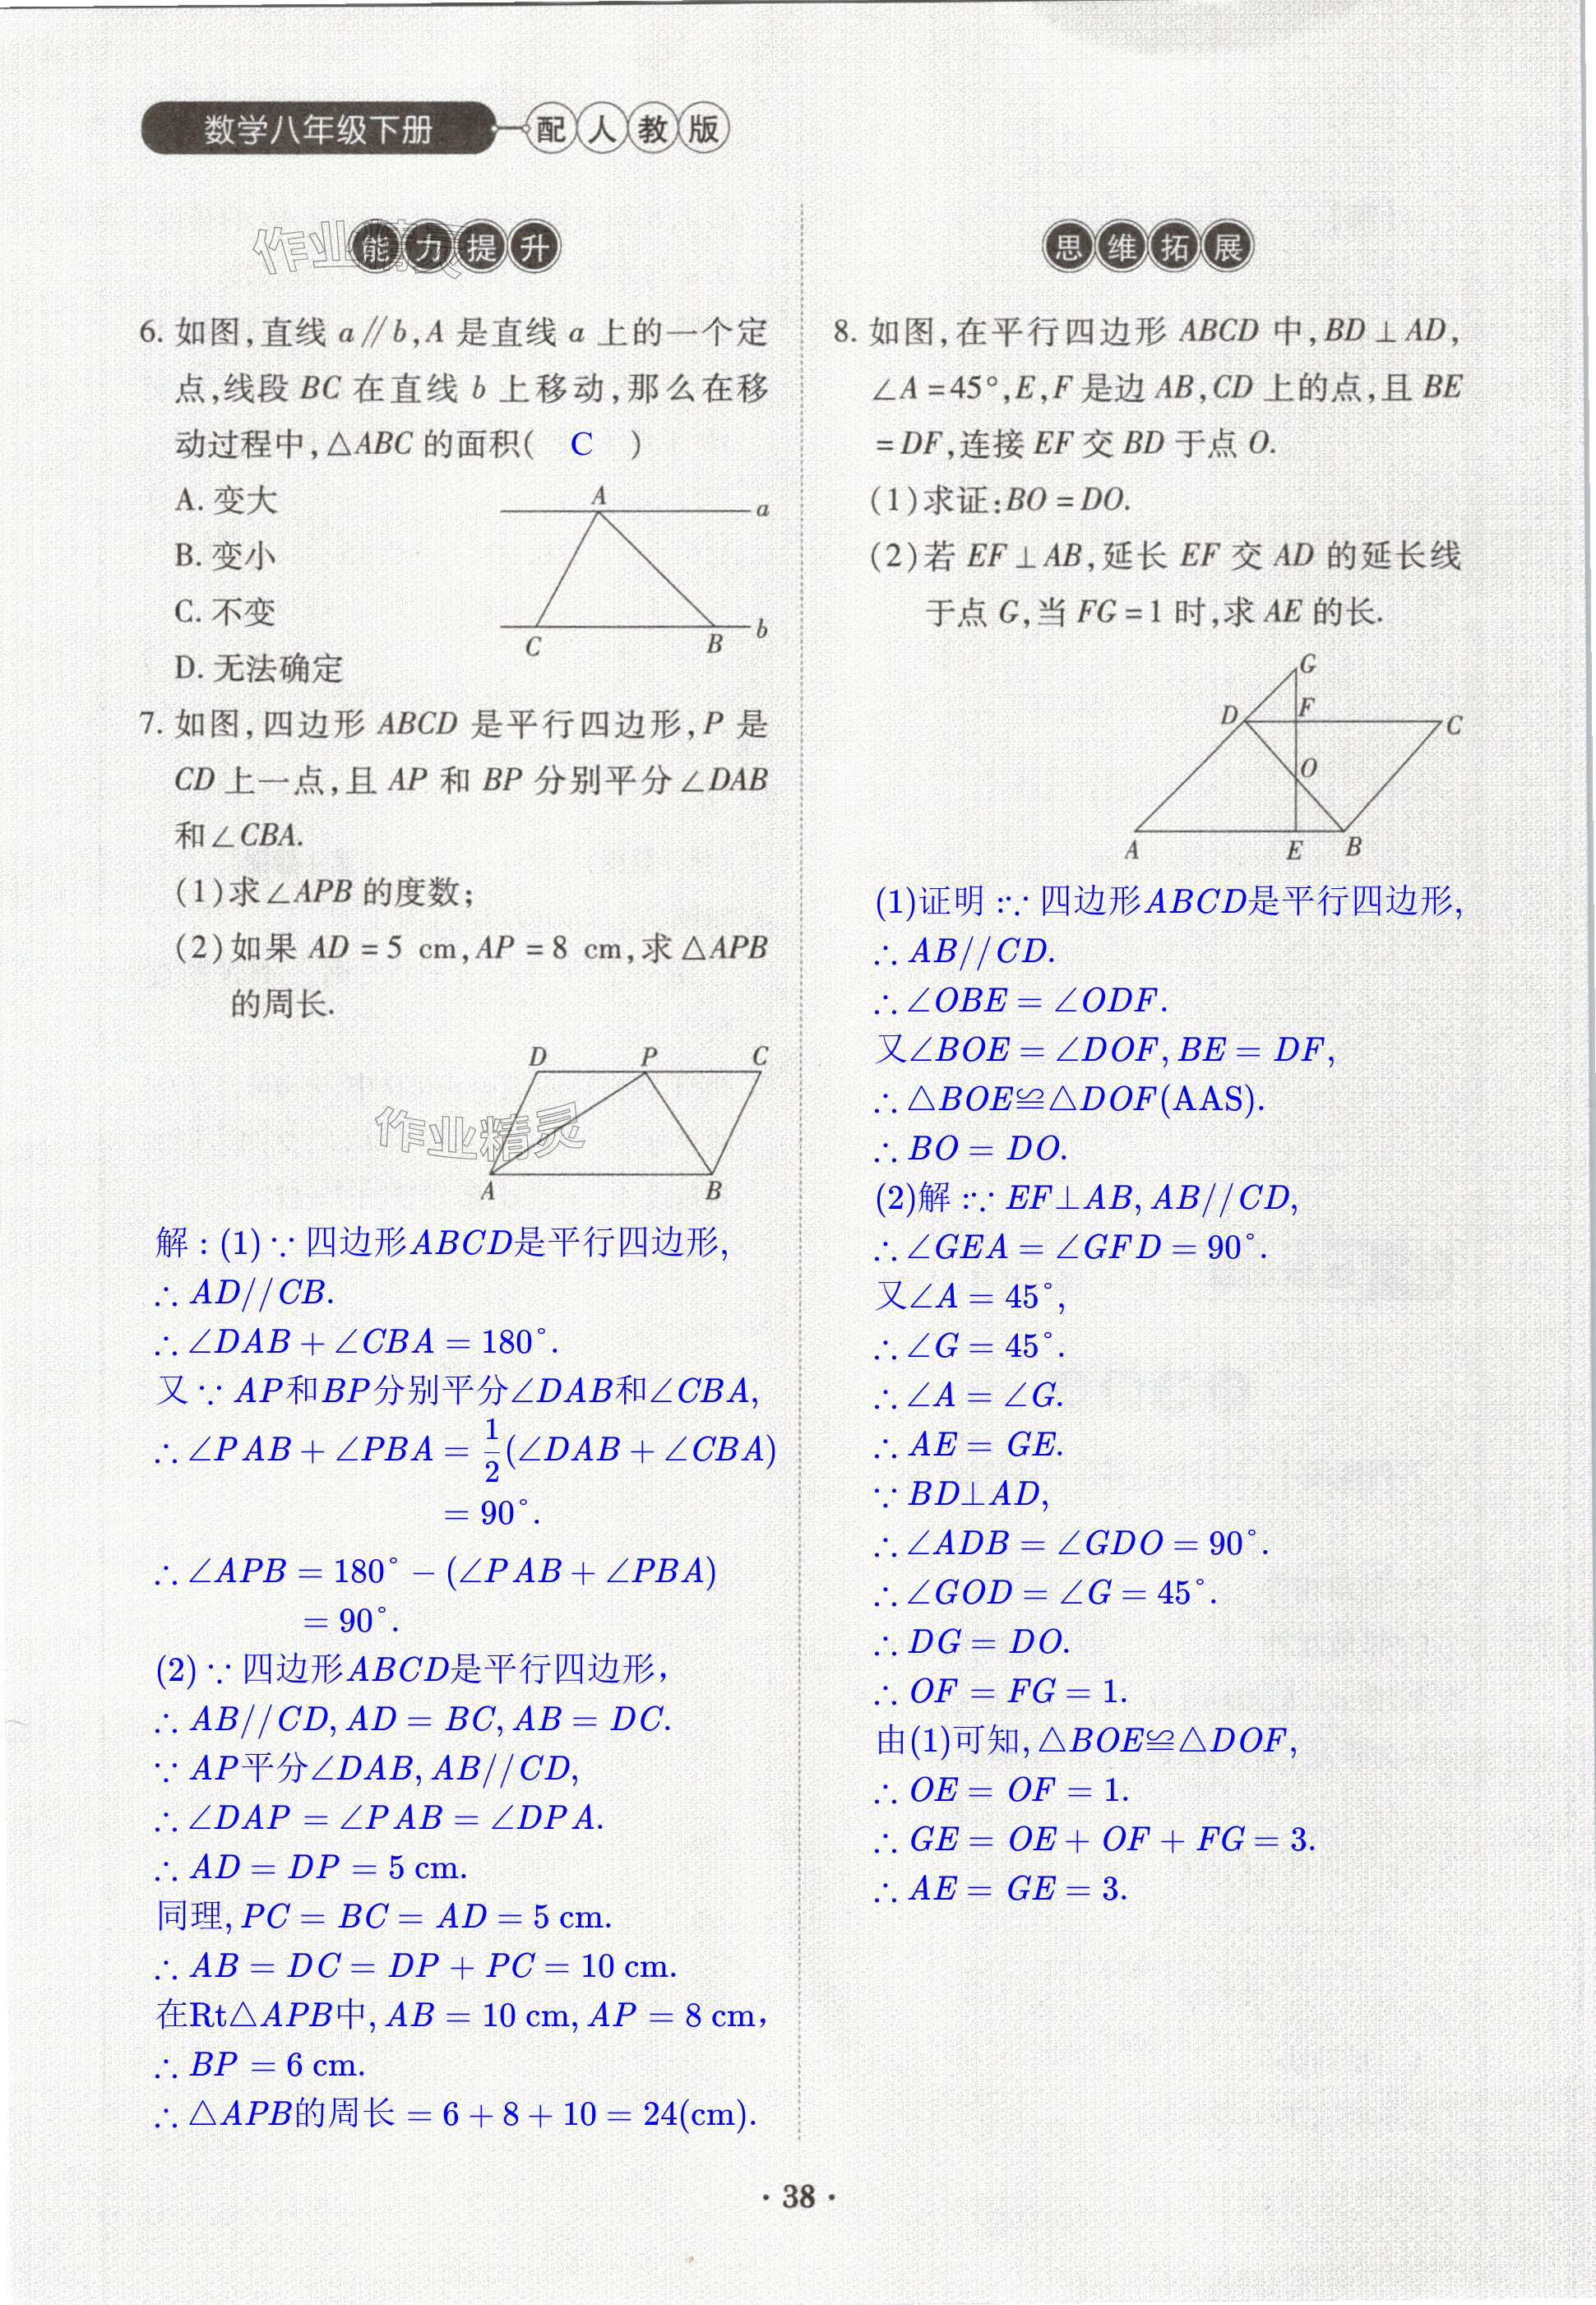 数学八年级下册 配人教版
能力提升
作业精灵
6. 如图,直线 a∥b,A 是直线 a 上的一个定
点,线段 BC 在直线 b 上移动,那么在移
动过程中,△ABC 的面积( C )
A. 变大
B. 变小
C. 不变
D. 无法确定
A
a
C
B
b
7. 如图,四边形 ABCD 是平行四边形,P 是
CD 上一点,且 AP 和 BP 分别平分∠DAB
和∠CBA.
(1)求∠APB 的度数;
(2)如果 AD = 5 cm,AP = 8 cm,求△APB
的周长.
D P C
作业精灵
A B
解 : (1) ∵ 四边形ABCD是平行四边形,
∴ AD//CB.
∴ ∠DAB + ∠CBA = 180°.
又 ∵ AP和BP分别平分∠DAB和∠CBA,
∴ ∠PAB + ∠PBA = 1/2(∠DAB + ∠CBA)
= 90°.
∴ ∠APB = 180° − (∠PAB + ∠PBA)
= 90°.
(2) ∵ 四边形ABCD是平行四边形，
∴ AB//CD, AD = BC, AB = DC.
∵ AP平分∠DAB, AB//CD,
∴ ∠DAP = ∠PAB = ∠DPA.
∴ AD = DP = 5 cm.
同理, PC = BC = AD = 5 cm.
∴ AB = DC = DP + PC = 10 cm.
在Rt△APB中, AB = 10 cm, AP = 8 cm，
∴ BP = 6 cm.
∴ △APB的周长 = 6 + 8 + 10 = 24(cm).
思维拓展
8. 如图,在平行四边形 ABCD 中,BD⊥AD,
∠A = 45°,E,F 是边 AB,CD 上的点,且 BE
= DF,连接 EF 交 BD 于点 O.
(1)求证:BO = DO.
(2)若 EF⊥AB,延长 EF 交 AD 的延长线
于点 G,当 FG = 1 时,求 AE 的长.
G
D F C
O
A E B
(1)证明 :∵ 四边形ABCD是平行四边形,
∴ AB//CD.
∴ ∠OBE = ∠ODF.
又∠BOE = ∠DOF, BE = DF,
∴ △BOE≌△DOF(AAS).
∴ BO = DO.
(2)解 :∵ EF⊥AB, AB//CD,
∴ ∠GEA = ∠GFD = 90°.
又∠A = 45°,
∴ ∠G = 45°.
∴ ∠A = ∠G.
∴ AE = GE.
∵ BD⊥AD,
∴ ∠ADB = ∠GDO = 90°.
∴ ∠GOD = ∠G = 45°.
∴ DG = DO.
∴ OF = FG = 1.
由(1)可知, △BOE≌△DOF,
∴ OE = OF = 1.
∴ GE = OE + OF + FG = 3.
∴ AE = GE = 3.
· 38 ·